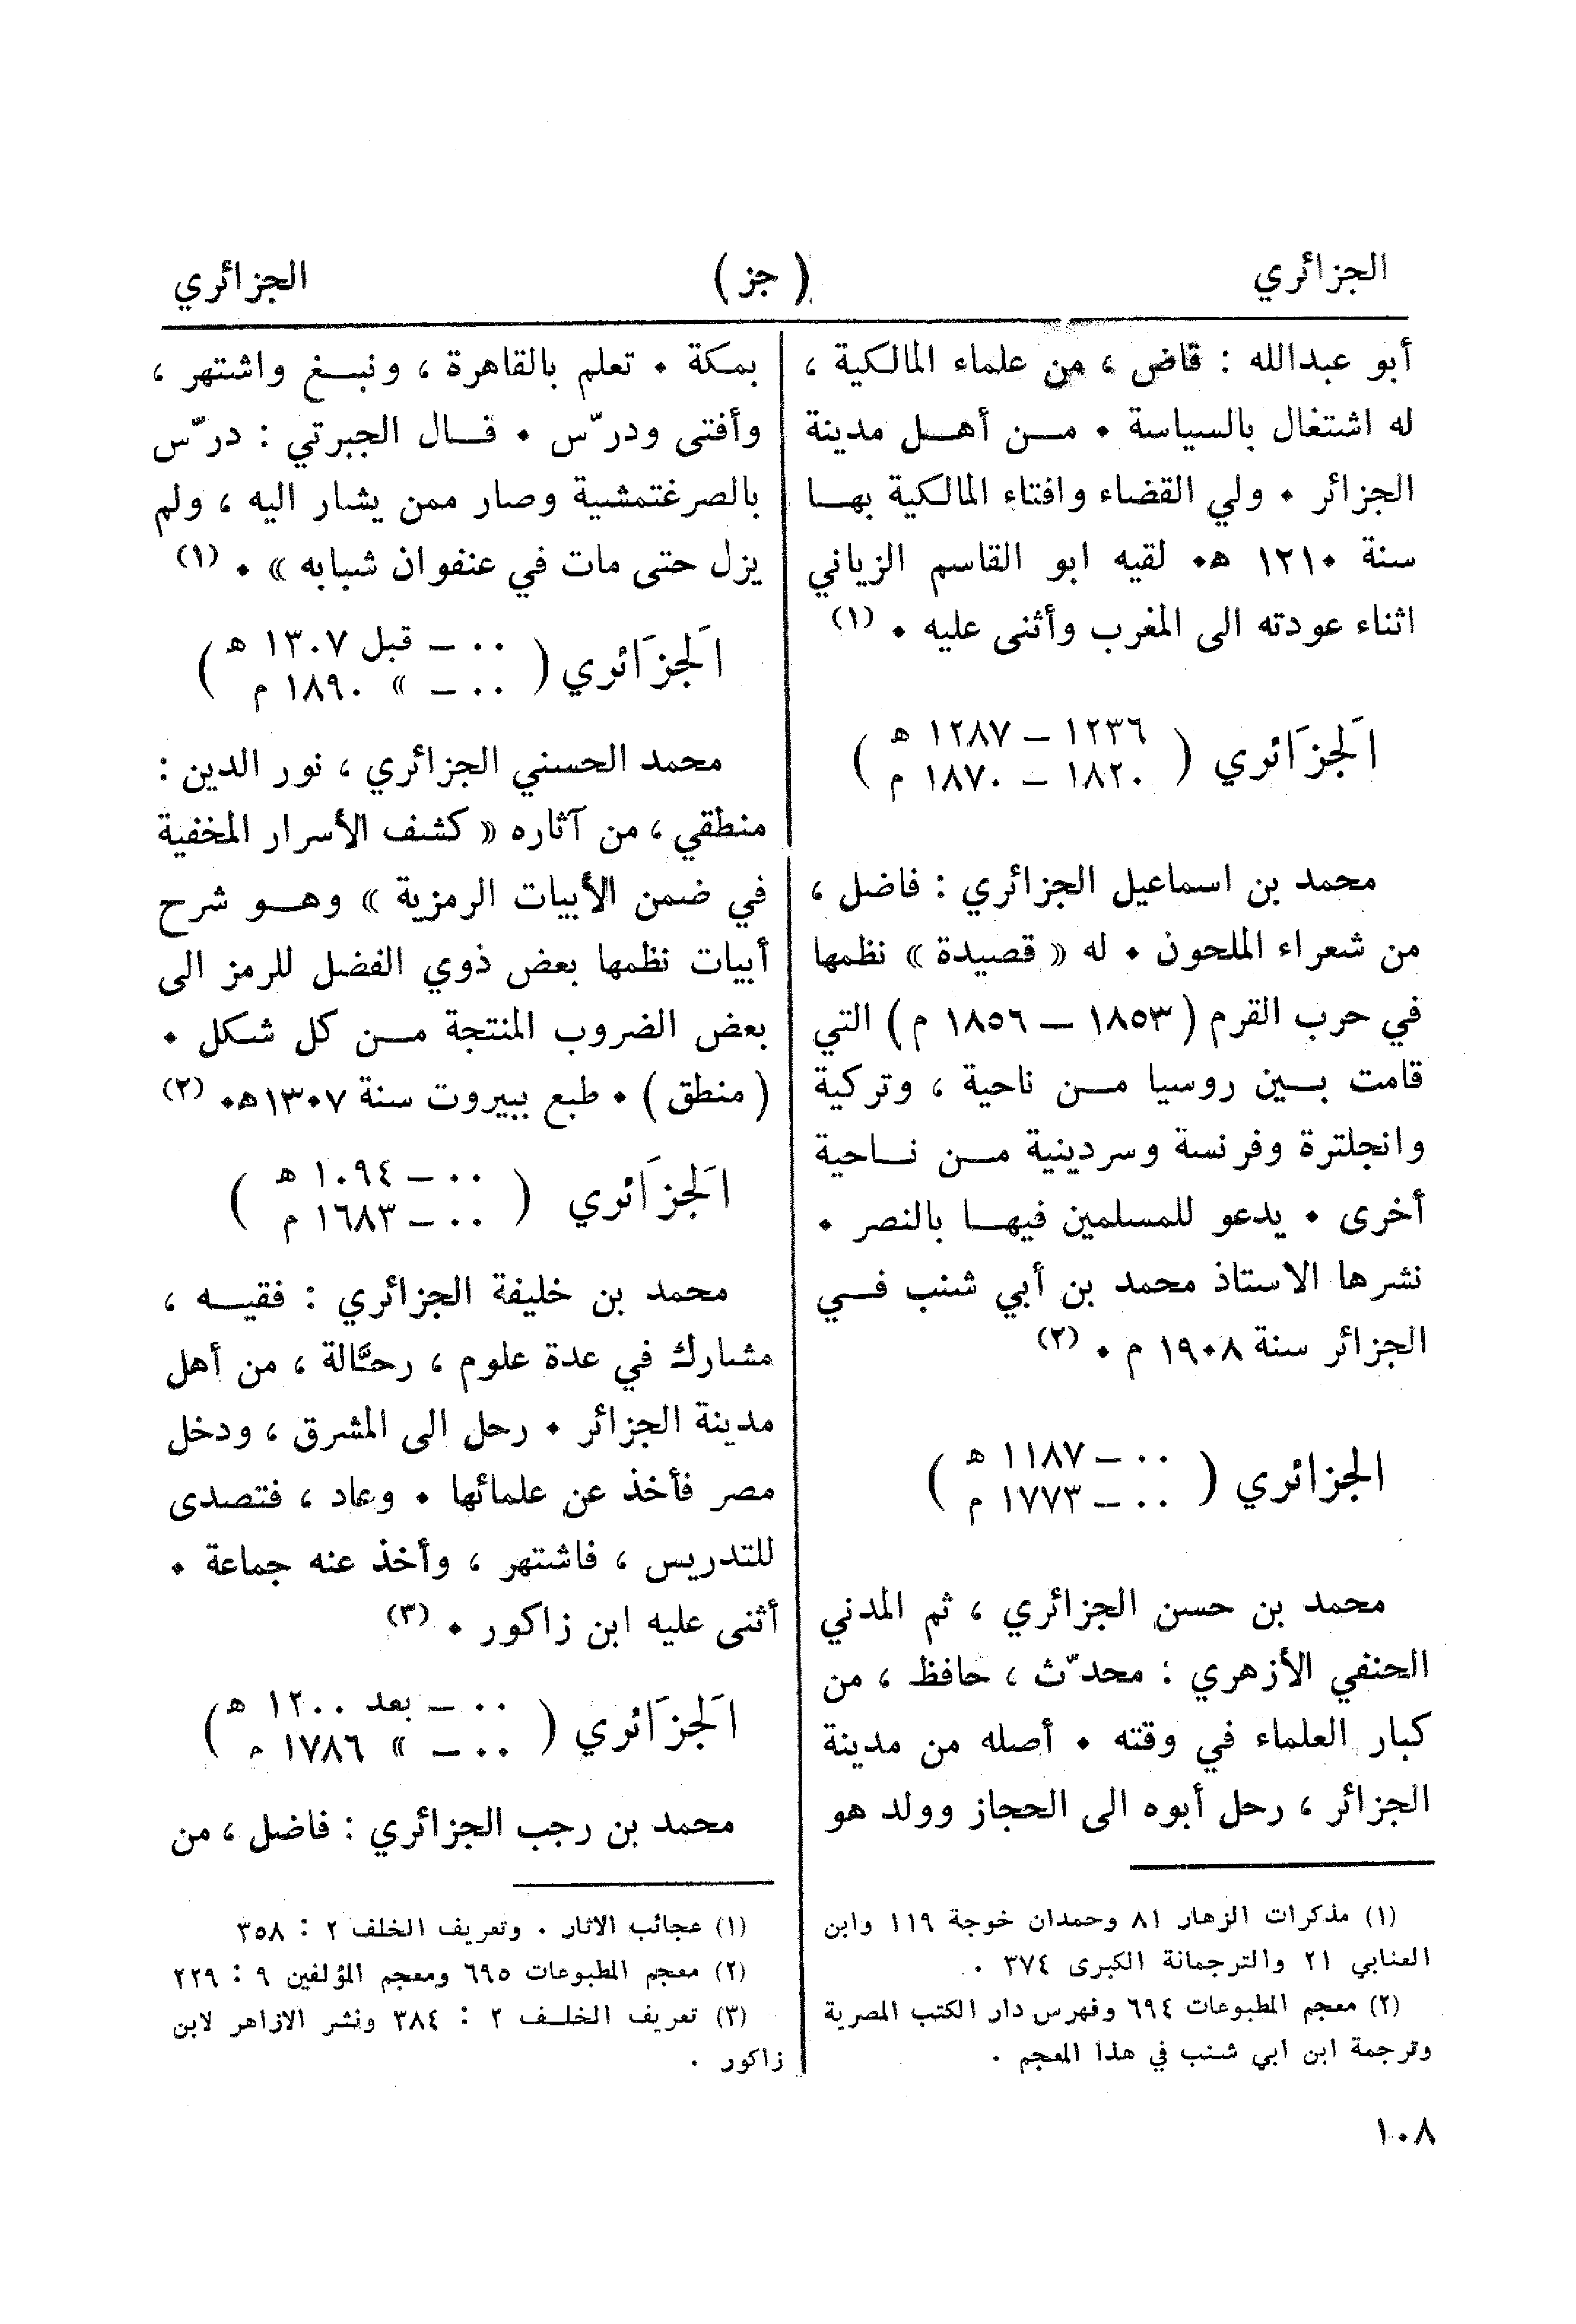 الجزائري
( جز )
الجزائري
أبو عبدالله : قاض ، من علماء المالكية ،
له اشتغال بالسياسة ٠ مـن أهـل مدينة
الجزائر ٠ ولي القضاء وافتاء المالكية بهـا
سنة ١٢١٠ هـ٠ لقيه ابو القاسم الزياني
اثناء عودته الى المغرب وأثنى عليه ٠ (١)
اَلجزَائري ( ١٢٣٦ – ١٢٨٧ هـ
١٨٢٠ – ١٨٧٠ م )
محمد بن اسماعيل الجزائري : فاضل ،
من شعراء الملحون ٠ له « قصيدة » نظمها
في حرب القرم ( ١٨٥٣ – ١٨٥٦ م ) التي
قامت بـين روسيا مـن ناحية ، وتركية
وانجلترة وفرنسة وسردينية مـن نـاحية
أخرى ٠ يدعو للمسلمين فيهـا بالنصر ٠
نشرها الاستاذ محمد بن أبي شنب فـي
الجزائر سنة ١٩٠٨ م ٠ (٢)
الجزائري ( ٠٠ – ١١٨٧ هـ
٠٠ – ١٧٧٣ م )
محمد بن حسن الجزائري ، ثم المدني
الحنفي الأزهري : محدّث ، حافظ ، من
كبار العلماء في وقته ٠ أصله من مدينة
الجزائر ، رحل أبوه الى الحجاز وولد هو
(١) مذكرات الزهار ٨١ وحمدان خوجة ١١٩ وابن
العنابي ٢١ والترجمانة الكبرى ٣٧٤ .
(٢) معجم المطبوعات ٦٩٤ وفهرس دار الكتب المصرية
وترجمة ابن ابي شنب في هذا المعجم .
بمكة ٠ تعلم بالقاهرة ، ونبـغ واشتهر ،
وأفتى ودرّس ٠ قـال الجبرتي : درّس
بالصرغتمشية وصار ممن يشار اليه ، ولم
يزل حتى مات في عنفوان شبابه » ٠ (١)
اَلجزَائري ( ٠٠ – قبل ١٣٠٧ هـ
٠٠ – » ١٨٩٠ م )
محمد الحسني الجزائري ، نور الدين :
منطقي ، من آثاره « كشف الأسرار المخفية
في ضمن الأبيات الرمزية » وهـو شرح
أبيات نظمها بعض ذوي الفضل للرمز الى
بعض الضروب المنتجة مـن كل شكل ٠
( منطق ) ٠ طبع ببيروت سنة ١٣٠٧هـ٠ (٢)
اَلجزَائري ( ٠٠ – ١٠٩٤ هـ
٠٠ – ١٦٨٣ م )
محمد بن خليفة الجزائري : فقيـه ،
مشارك في عدة علوم ، رحَّالة ، من أهل
مدينة الجزائر ٠ رحل الى المشرق ، ودخل
مصر فأخذ عن علمائها ٠ وعاد ، فتصدى
للتدريس ، فاشتهر ، وأخذ عنه جماعة ٠
أثنى عليه ابن زاكور ٠ (٣)
اَلجزَائري ( ٠٠ – بعد ١٢٠٠ هـ
٠٠ – » ١٧٨٦ م )
محمد بن رجب الجزائري : فاضل ، من
(١) عجائب الاثار . وتعريف الخلف ٢ : ٣٥٨
(٢) معجم المطبوعات ٦٩٥ ومعجم المؤلفين ٩ : ٢٢٩
(٣) تعريف الخلـف ٢ : ٣٨٤ ونشر الازاهر لابن
زاكور .
١٠٨